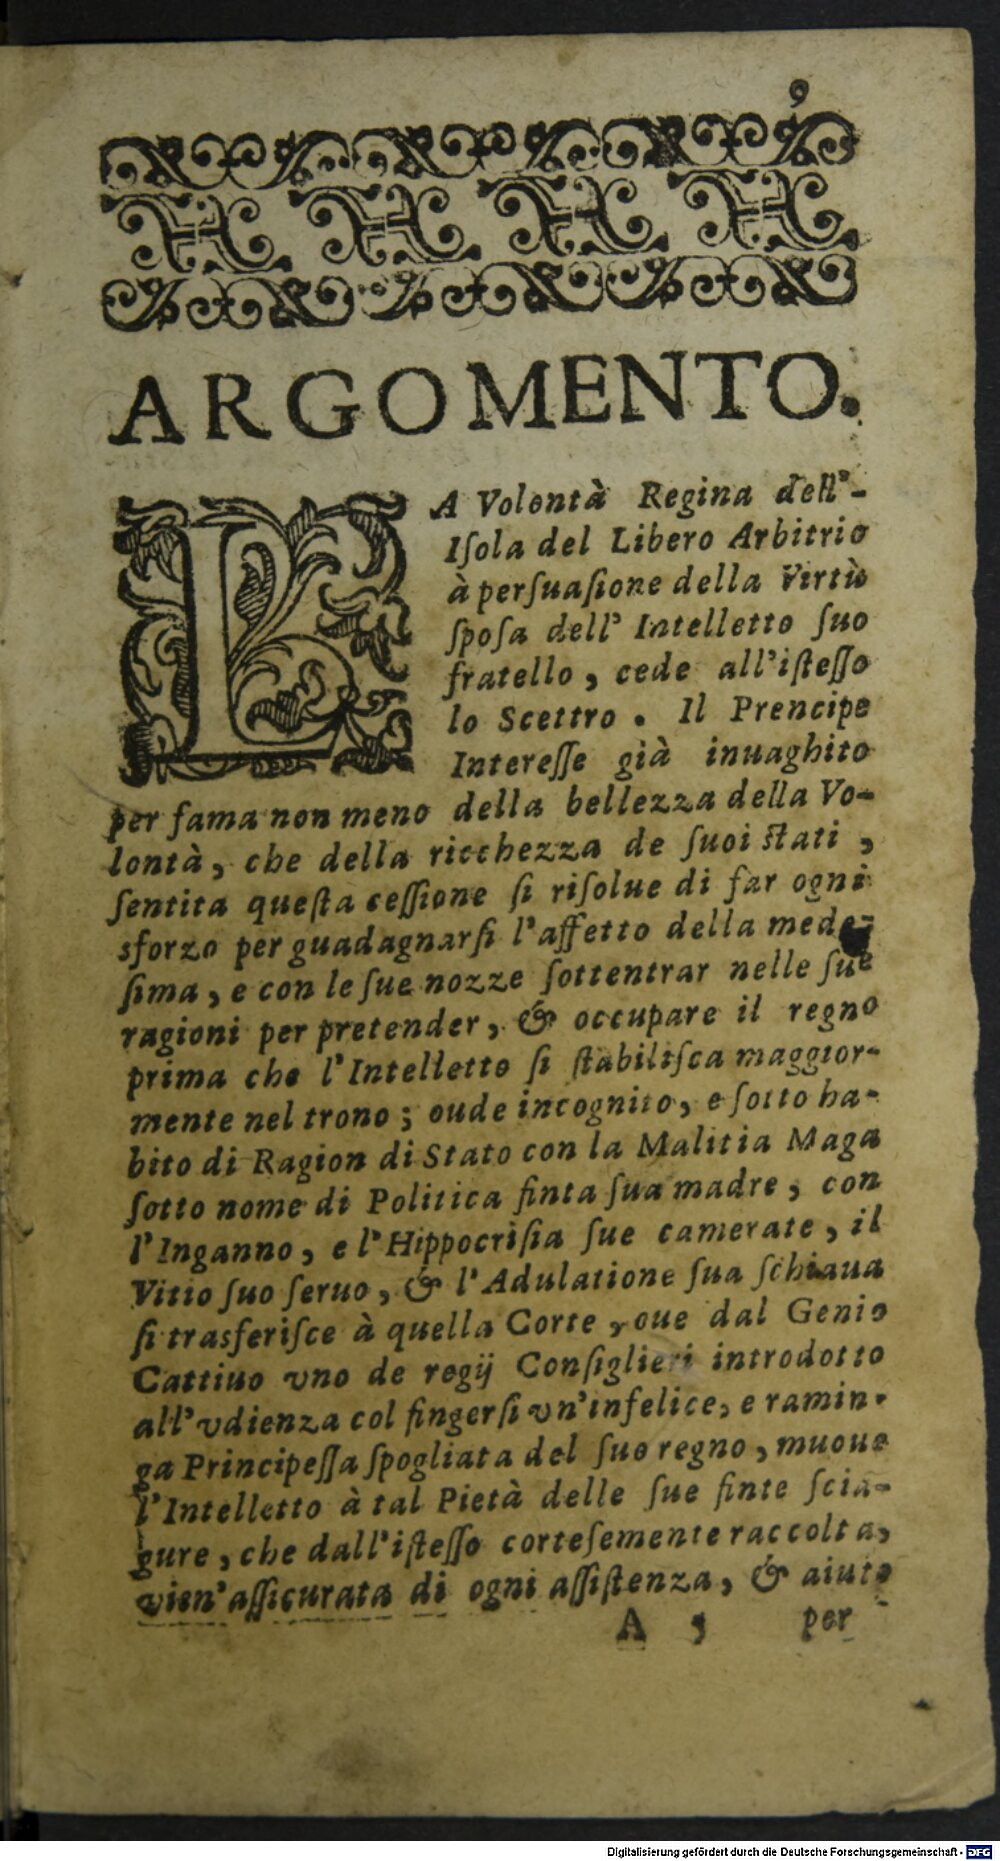 9
ARGOMENTO.
LA Volontà Regina dell'-
Iſola del Libero Arbitrio
à perſuaſione della Virtù
ſpoſa dell' Intelletto ſuo
fratello, cede all'iſteſſo
lo Scettro. Il Prencipe
Intereſſe già inuaghito
per fama non meno della bellezza della Vo-
lontà, che della ricchezza de ſuoi ſtati,
ſentita queſta ceſſione ſi riſolue di far ogni
sforzo per guadagnarſi l'affetto della mede-
ſima, e con le ſue nozze ſottentrar nelle ſue
ragioni per pretender, & occupare il regno
prima che l'Intelletto ſi ſtabiliſca maggior-
mente nel trono; oude incognito, e ſotto ha-
bito di Ragion di Stato con la Malitia Maga
ſotto nome di Politica finta ſua madre, con
l'Inganno, e l'Hippocriſia ſue camerate, il
Vitio ſuo ſeruo, & l'Adulatione ſua ſchiaua
ſi trasferiſce à quella Corte, oue dal Genio
Cattiuo vno de regij Conſiglieri introdotto
all'vdienza col fingerſi vn'infelice, e ramin-
ga Principeſſa ſpogliata del ſuo regno, muoue
l'Intelletto à tal Pietà delle ſue finte ſcia-
gure, che dall'iſteſſo corteſemente raccolta,
vien'aſſicurata di ogni aſſiſtenza, & aiuto
A 5 per
Digitalisierung gefördert durch die Deutsche Forschungsgemeinschaft - DFG